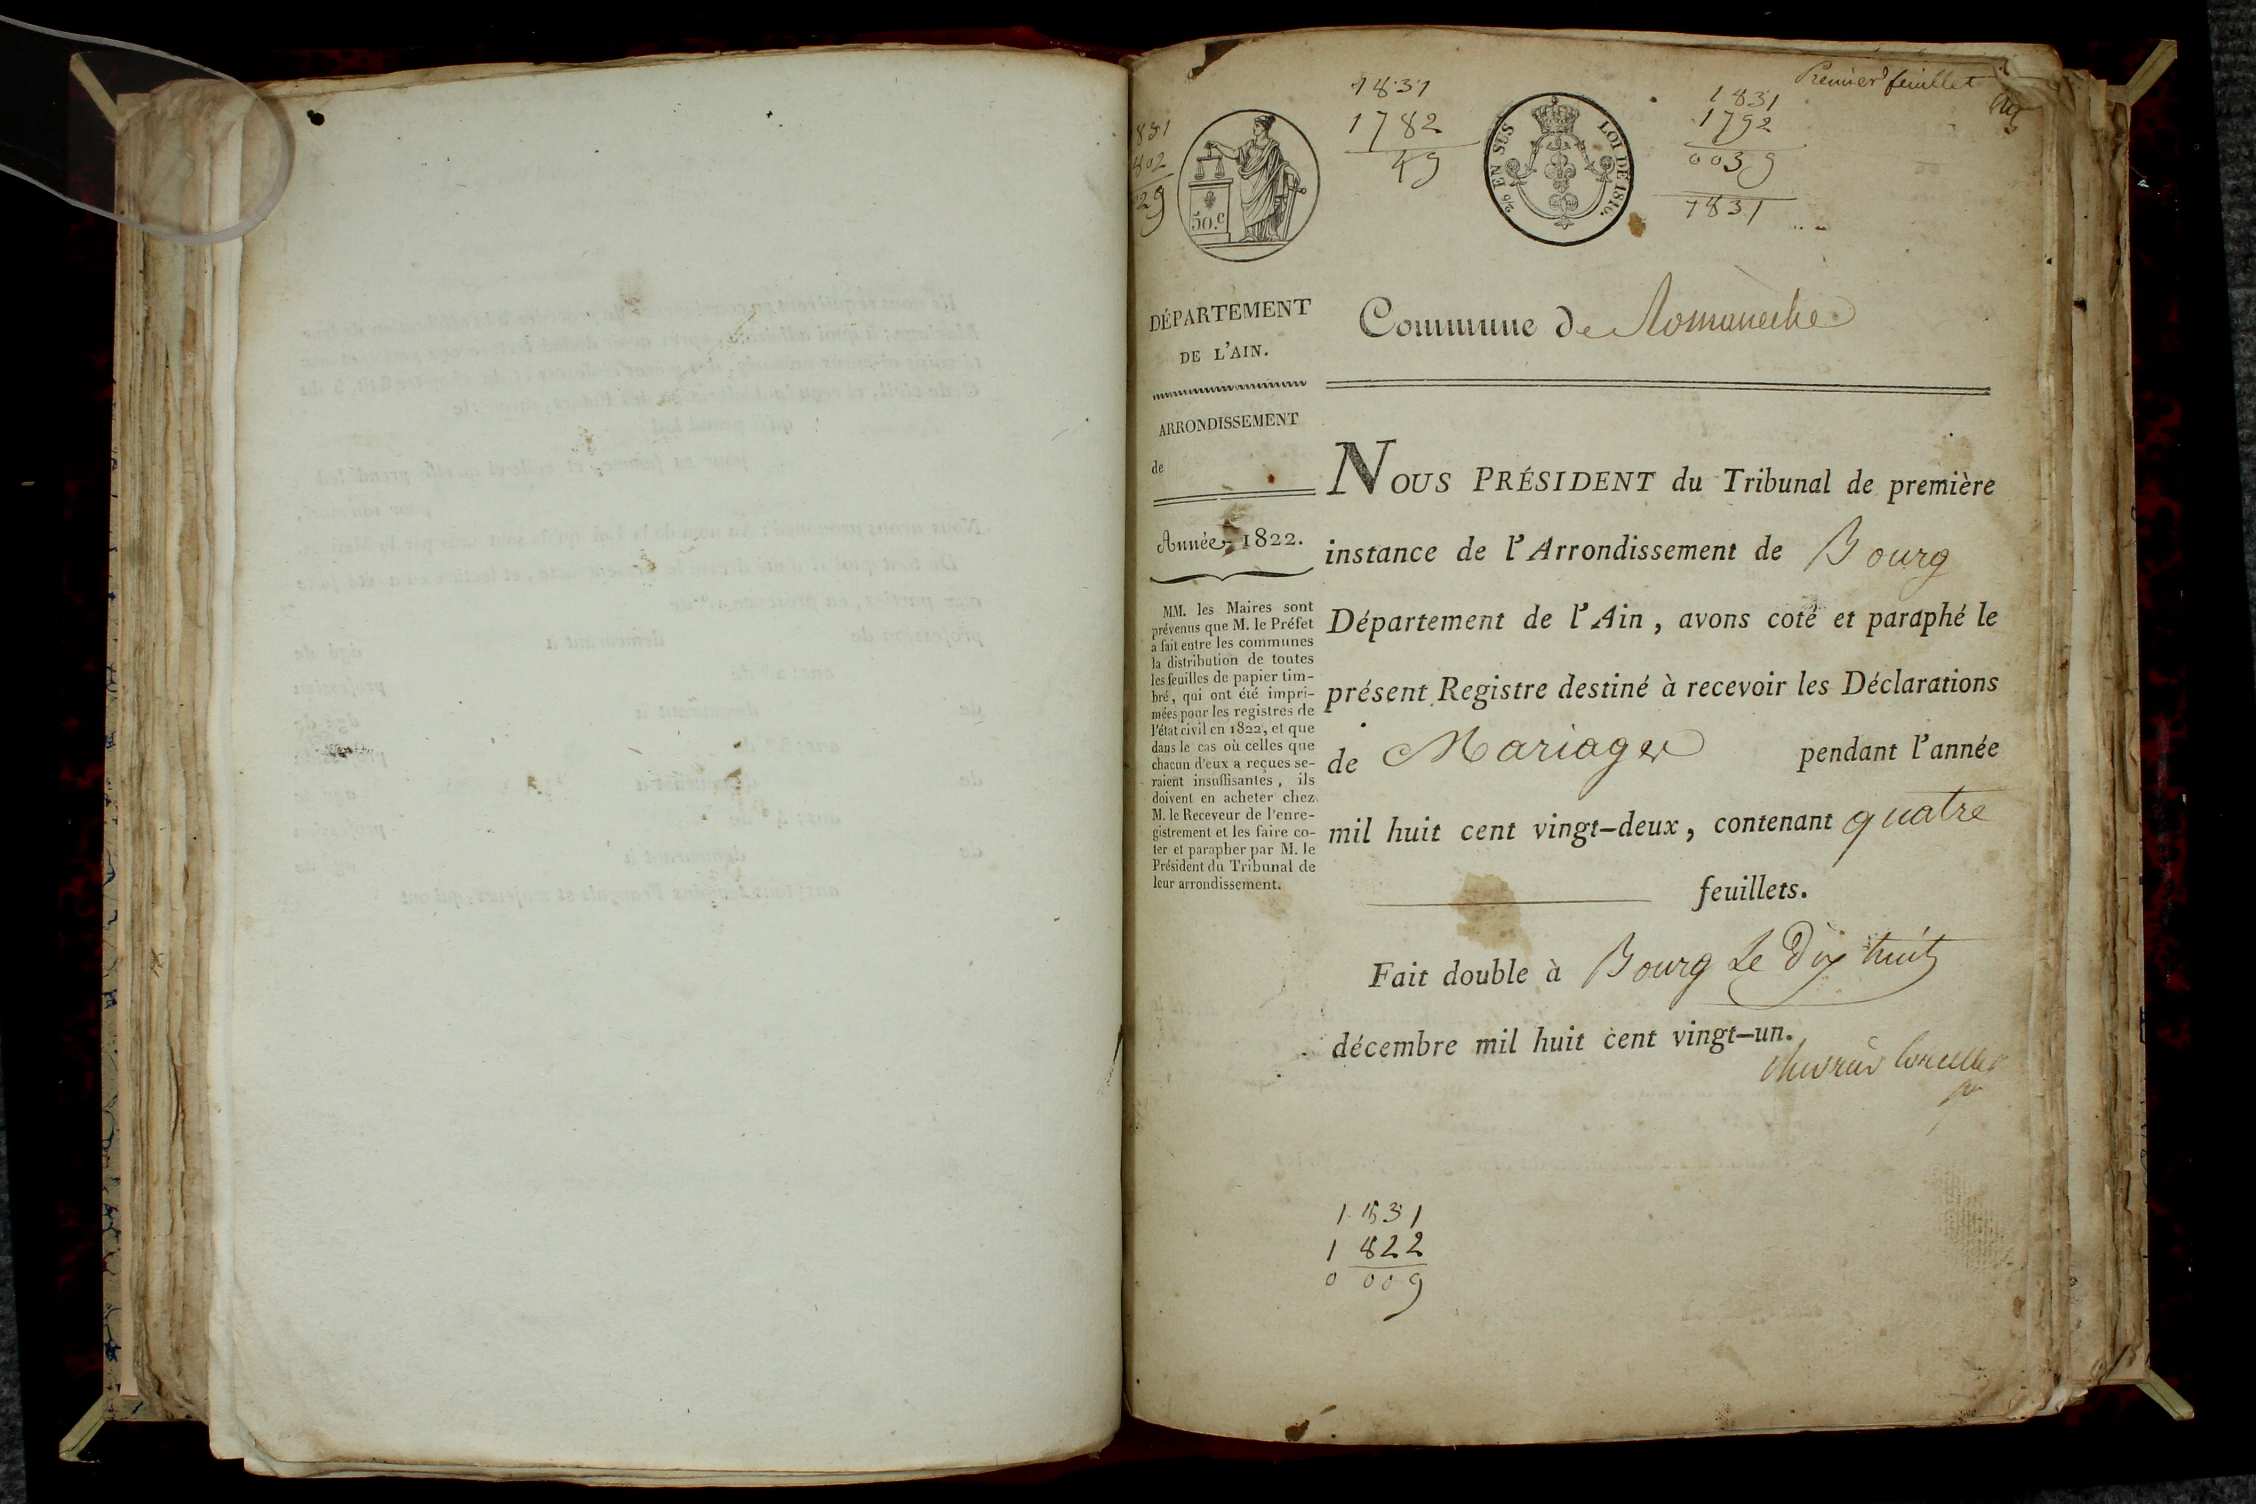 Premier feuillet
1831
1802
29
50.c
1831
1782
49
2/6 EN SUS
LOI DE 1816.
1831
1792
0039
1831
DÉPARTEMENT
DE L'AIN.
ARRONDISSEMENT
de
Année 1822.
MM. les Maires sont
prévenus que M. le Préfet
a fait entre les communes
la distribution de toutes
les feuilles de papier tim-
bré, qui ont été impri-
mées pour les registres de
l'état civil en 1822, et que
dans le cas où celles que
chacun d'eux a reçues se-
raient insuffisantes, ils
doivent en acheter chez
M. le Receveur de l'enre-
gistrement et les faire co-
ter et parapher par M. le
Président du Tribunal de
leur arrondissement.
Commune de Romaneche
NOUS PRÉSIDENT du Tribunal de première
instance de l'Arrondissement de Bourg
Département de l'Ain, avons coté et paraphé le
présent Registre destiné à recevoir les Déclarations
de Mariages pendant l'année
mil huit cent vingt-deux, contenant quatre
feuillets.
Fait double à Bourg Le Dix huit
décembre mil huit cent vingt-un.
1831
1822
0009